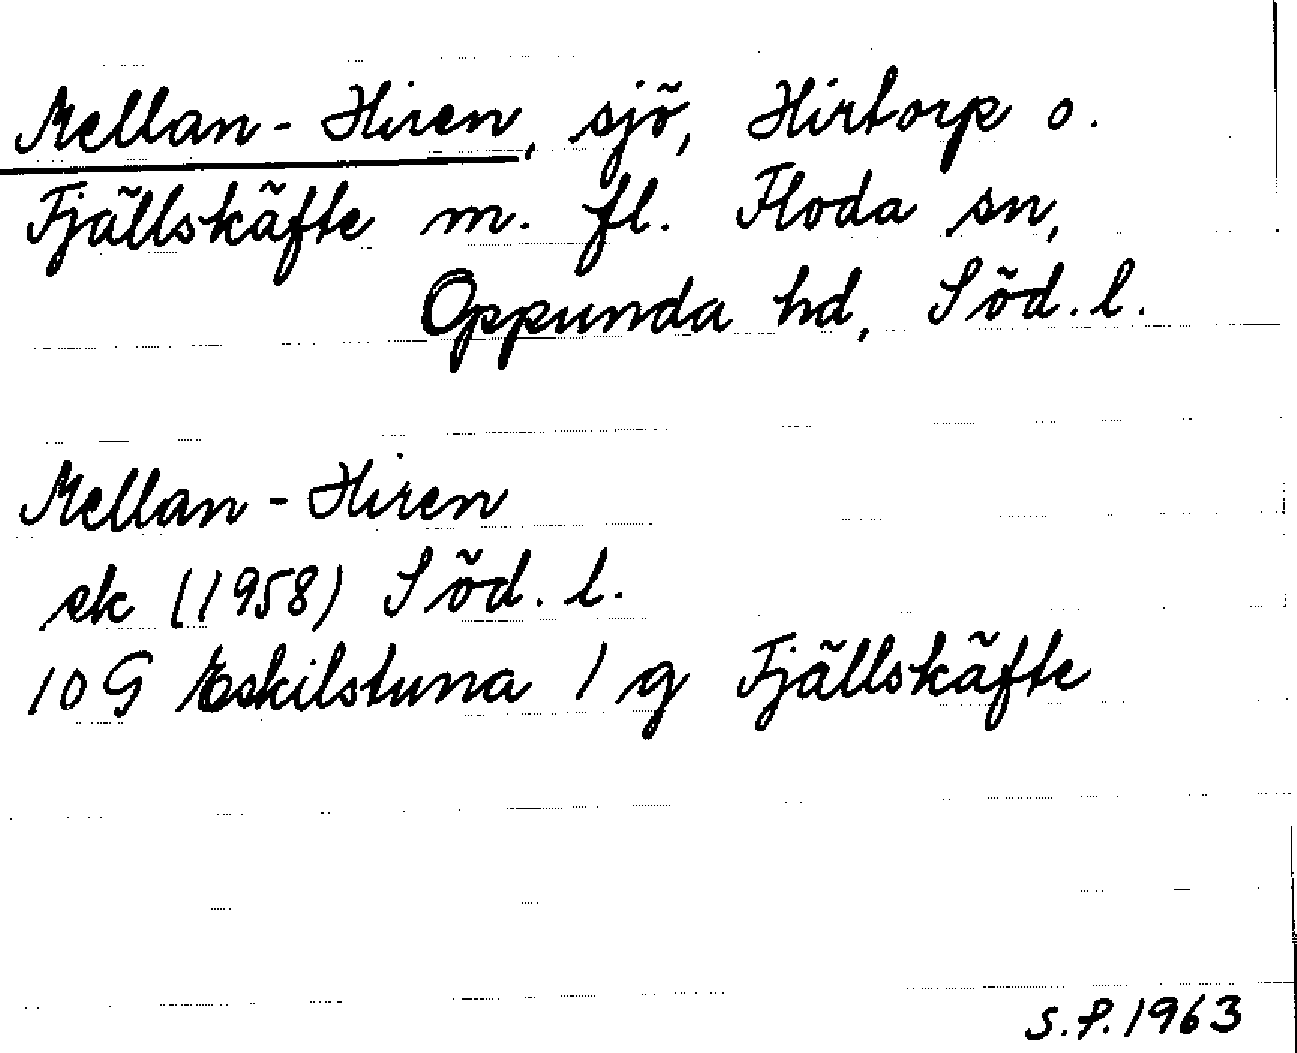 Mellan-Hiren, sjö, Hirtorp o.
Fjällskäfte m. fl. Floda sn,
Oppunda hd, Söd. l.
Mellan-Hiren
ek (1958) Söd. l.
10 G Eskilstuna 1 g Fjällskäfte
S.P. 1963